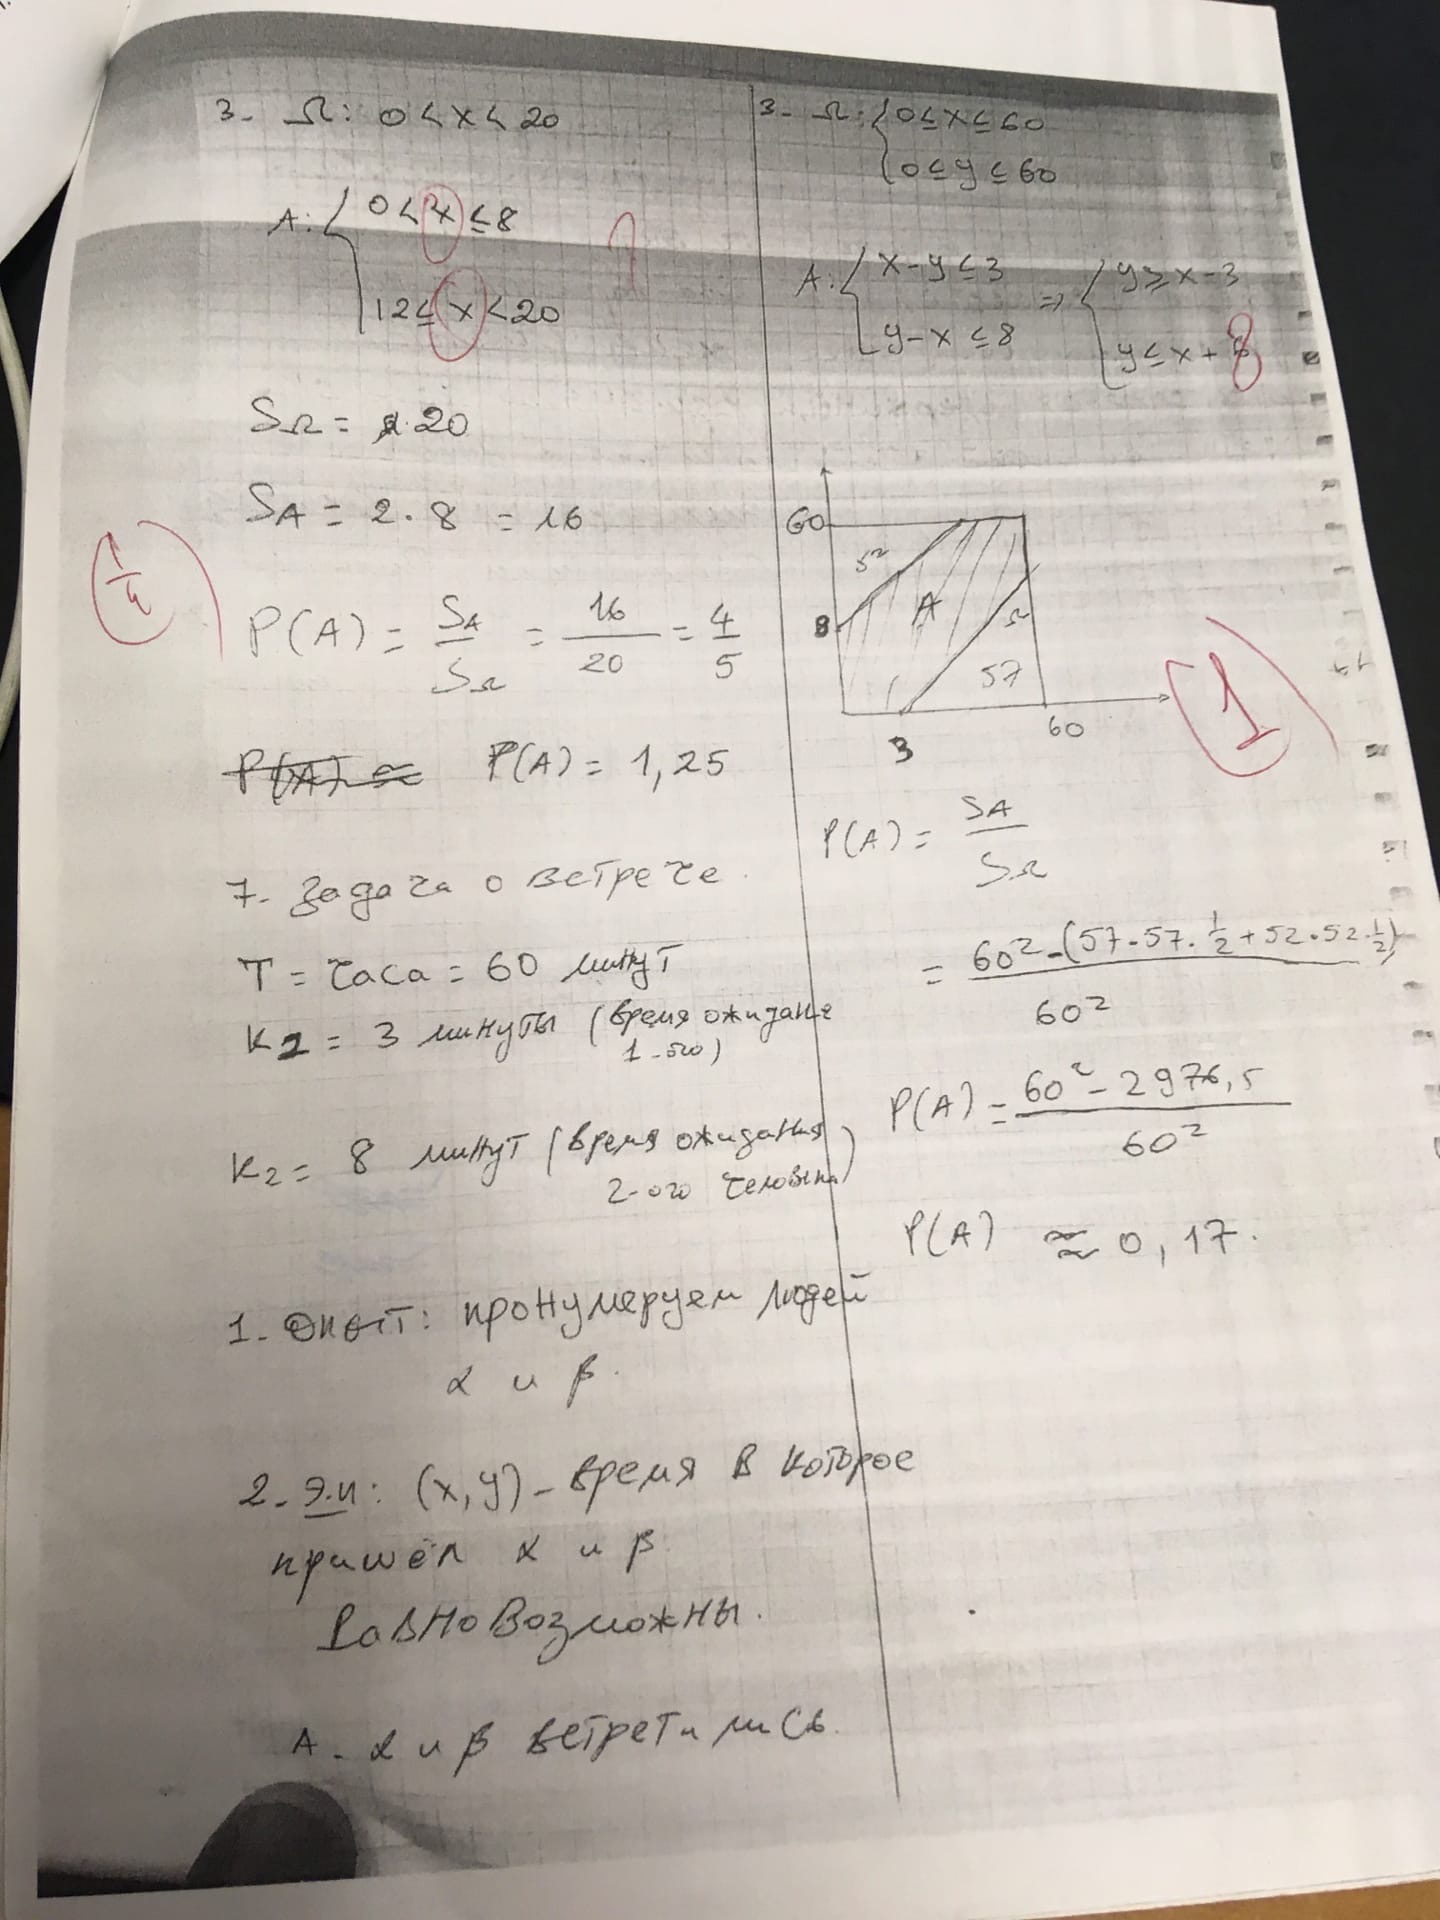 3. Ω: 0 < x < 20
A: { 0 < x ≤ 8
12 ≤ x < 20
SΩ = 20
SA = 2 · 8 = 16
1/4
P(A) = SA/SΩ = 16/20 = 4/5
P(A) ≈ P(A) = 1,25
7. Задача о встрече.
T = часа = 60 минут
K1 = 3 минуты (время ожидание
1-ого)
K2 = 8 минут (время ожидания
2-ого человека)
1. Опыт: пронумеруем людей
α и β.
2. Э.и: (x, y) - время в которое
пришёл α и β.
Равновозможны.
A - α и β встретились.
3. Ω: { 0 ≤ x ≤ 60
0 ≤ y ≤ 60
A: { x - y ≤ 3 => { y ≥ x - 3
y - x ≤ 8 y ≤ x + 8
60
52
8
A
52
57
3
60
1
P(A) = SA/SΩ
= 60² - (57 · 57 · 1/2 + 52 · 52 · 1/2) / 60²
P(A) = 60² - 2976,5 / 60²
P(A) ≈ 0,17.